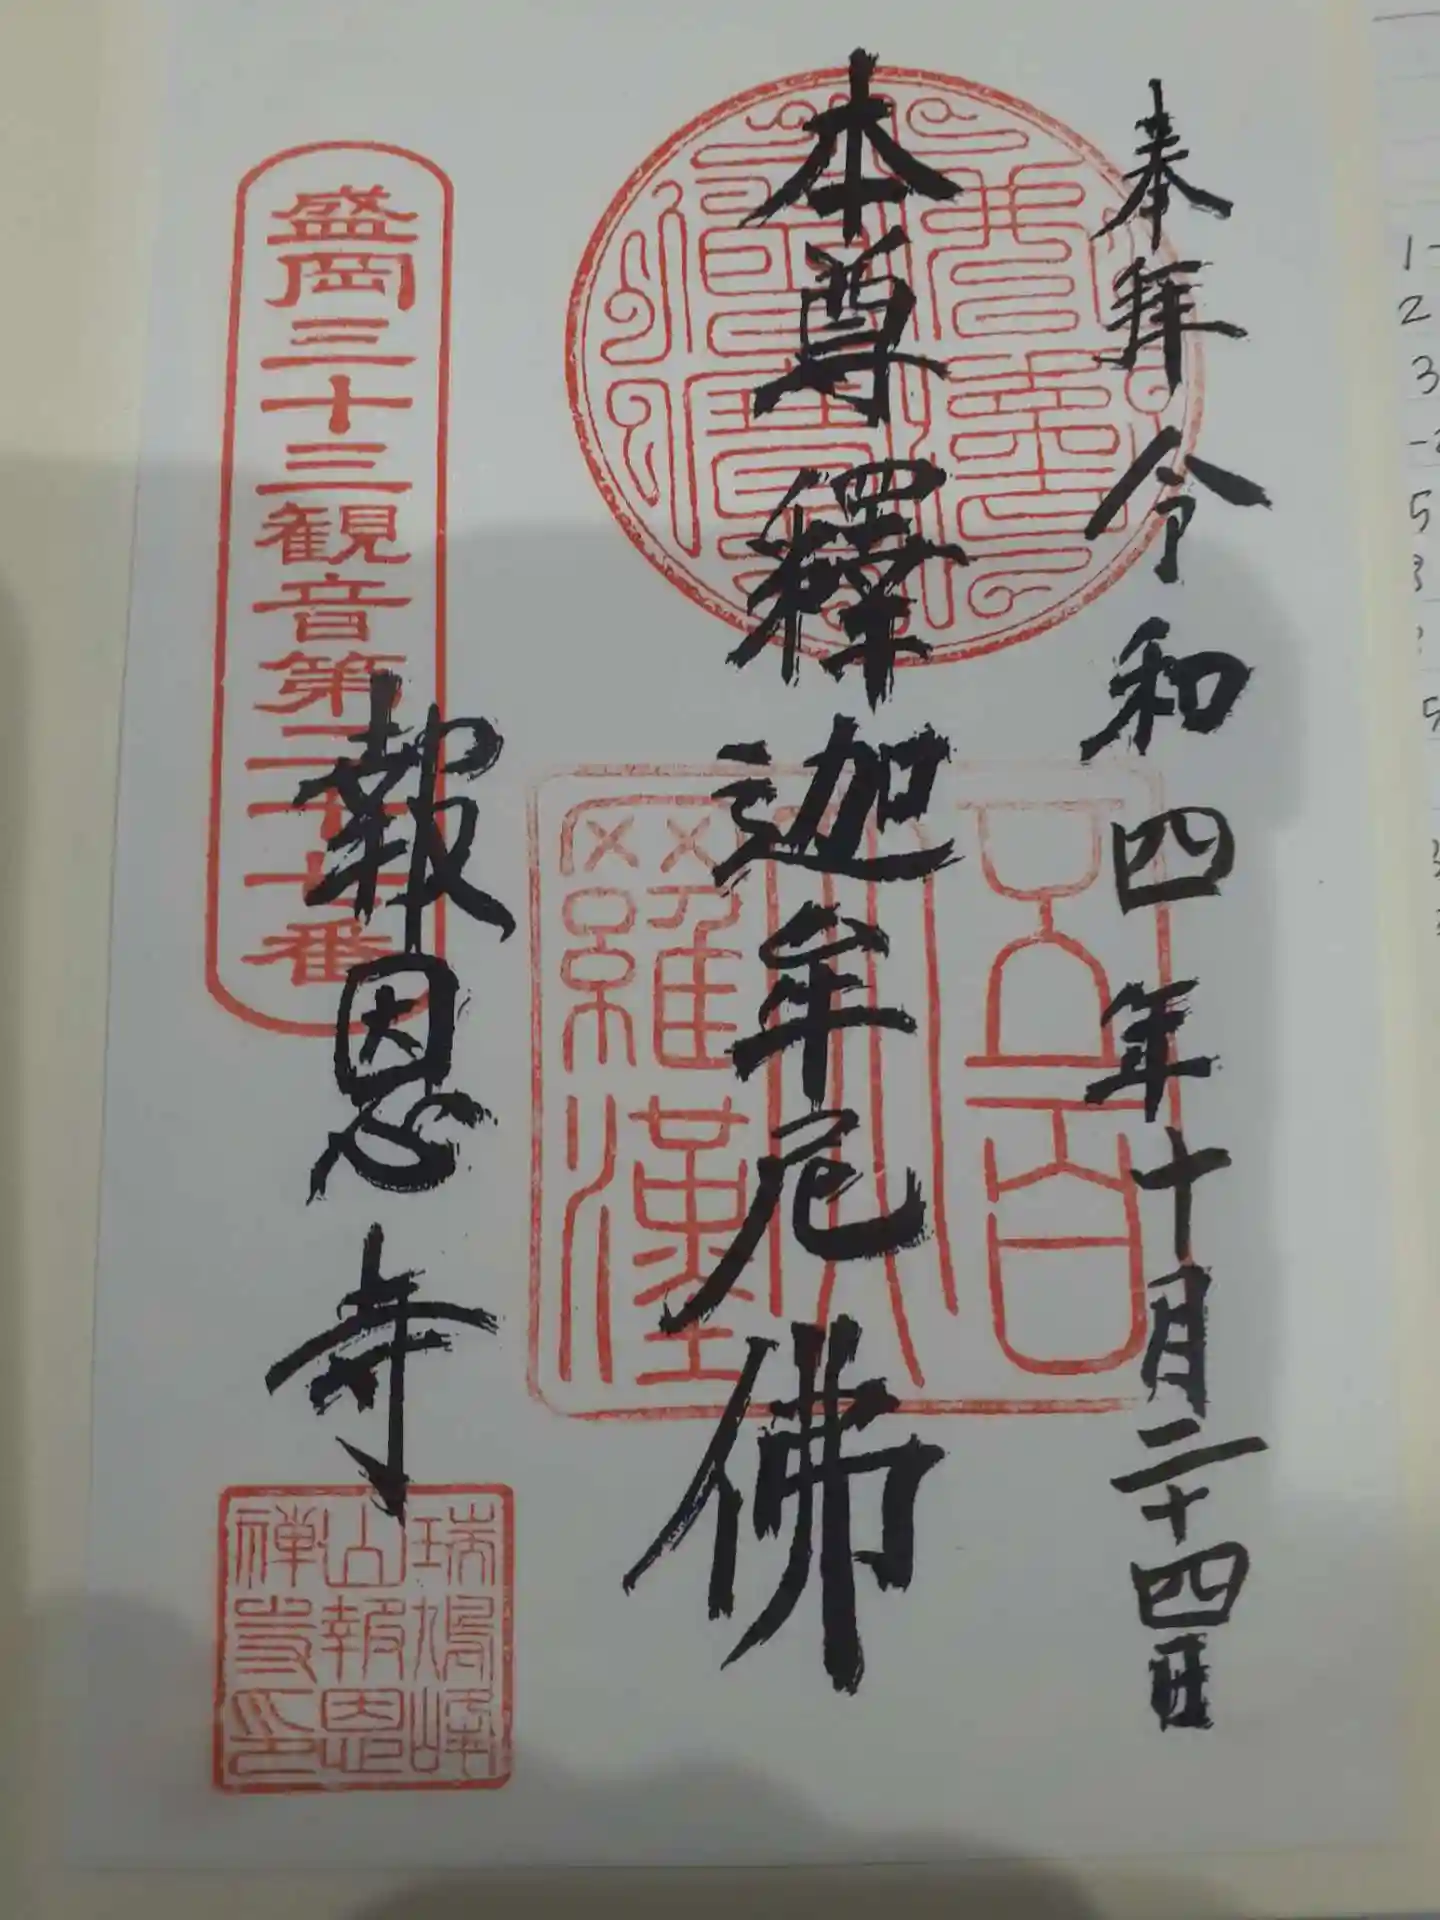 奉拝 令和四年十月二十四日
本尊釋迦牟尼佛
五百
大
羅漢
盛岡三十三観音第二十七番
報恩寺
瑞鳩峰
山報恩
禅寺印